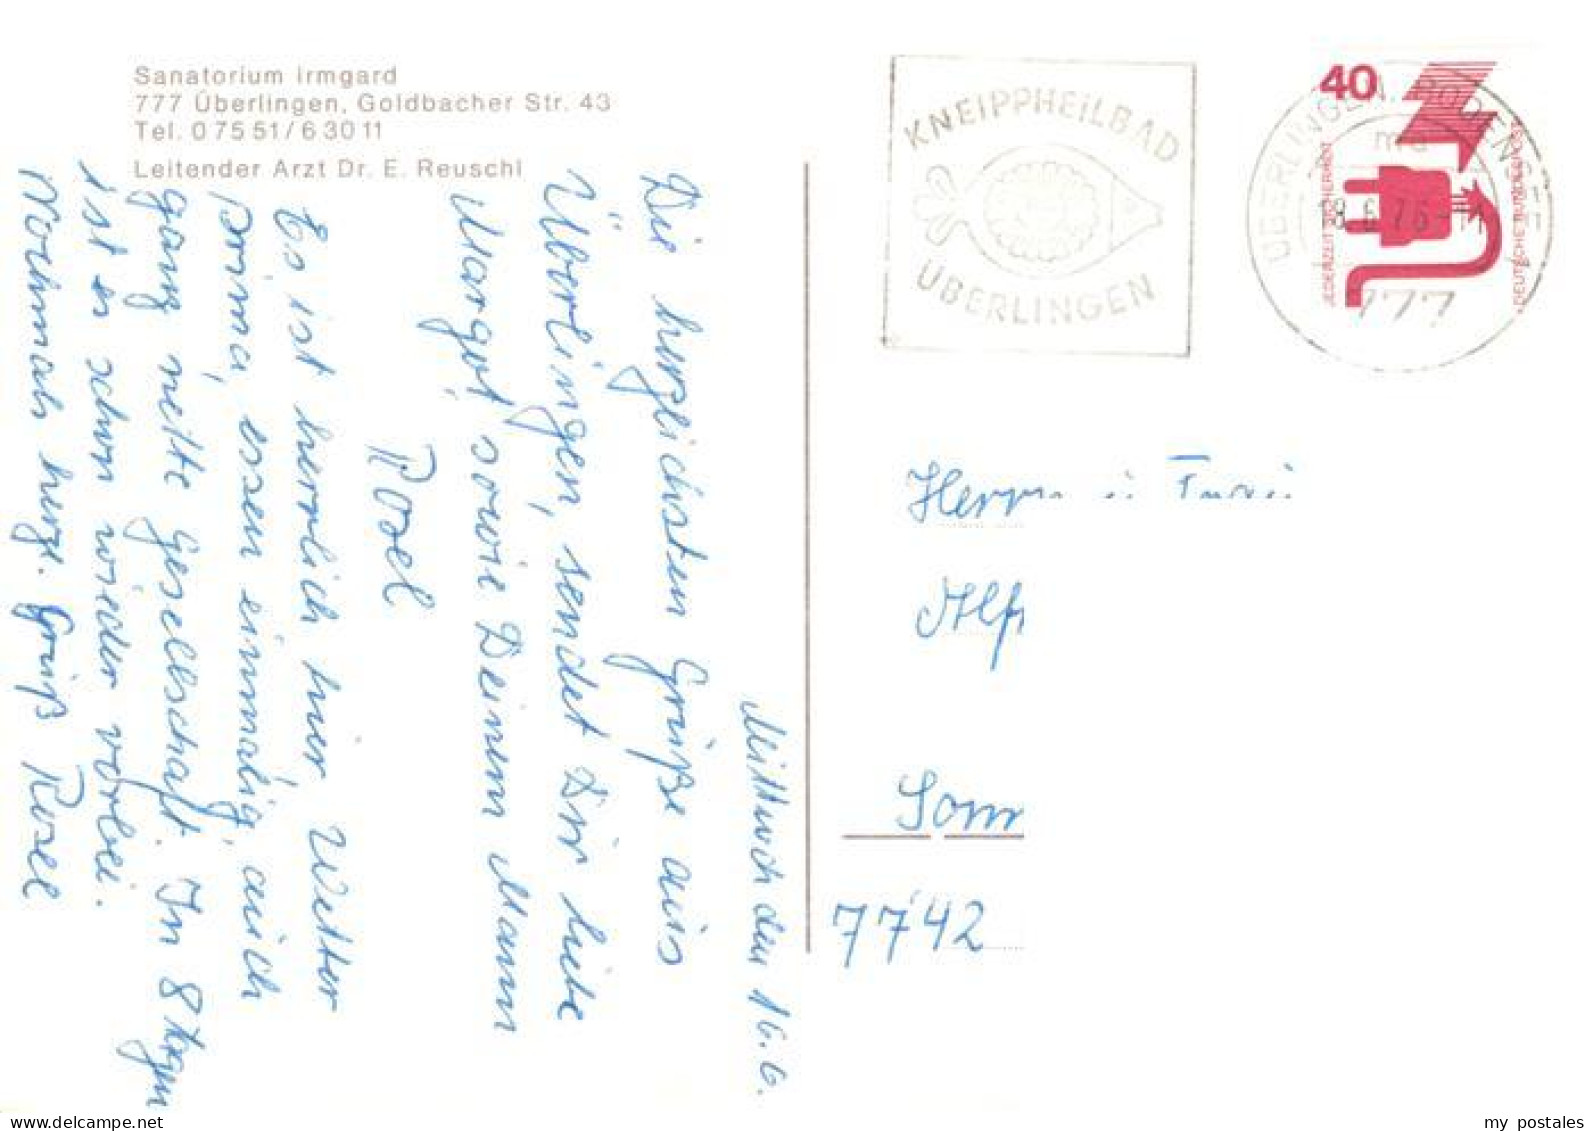 Sanatorium Irmgard
777 Überlingen, Goldbacher Str. 43
Tel. 0 75 51 / 6 30 11
Leitender Arzt Dr. E. Reuschl
Mittwoch den 16.6.
Die herzlichsten Grüße aus
Überlingen, sendet Dir liebe
Margot, sowie Deinem Mann
Rosel
Es ist herrlich hier, Wetter
prima, essen einmalig, auch
ganz nette Gesellschaft. In 8 Tagen
ist es schon wieder vorbei.
Nochmals herzl. Gruß Rosel
KNEIPPHEILBAD
ÜBERLINGEN
ÜBERLINGEN, BODENSEE
18.6.76-11
777
40
JEDERZEIT SICHERHEIT
DEUTSCHE BUNDESPOST
Herrn u Frau
Alf
Som
7742
my postales